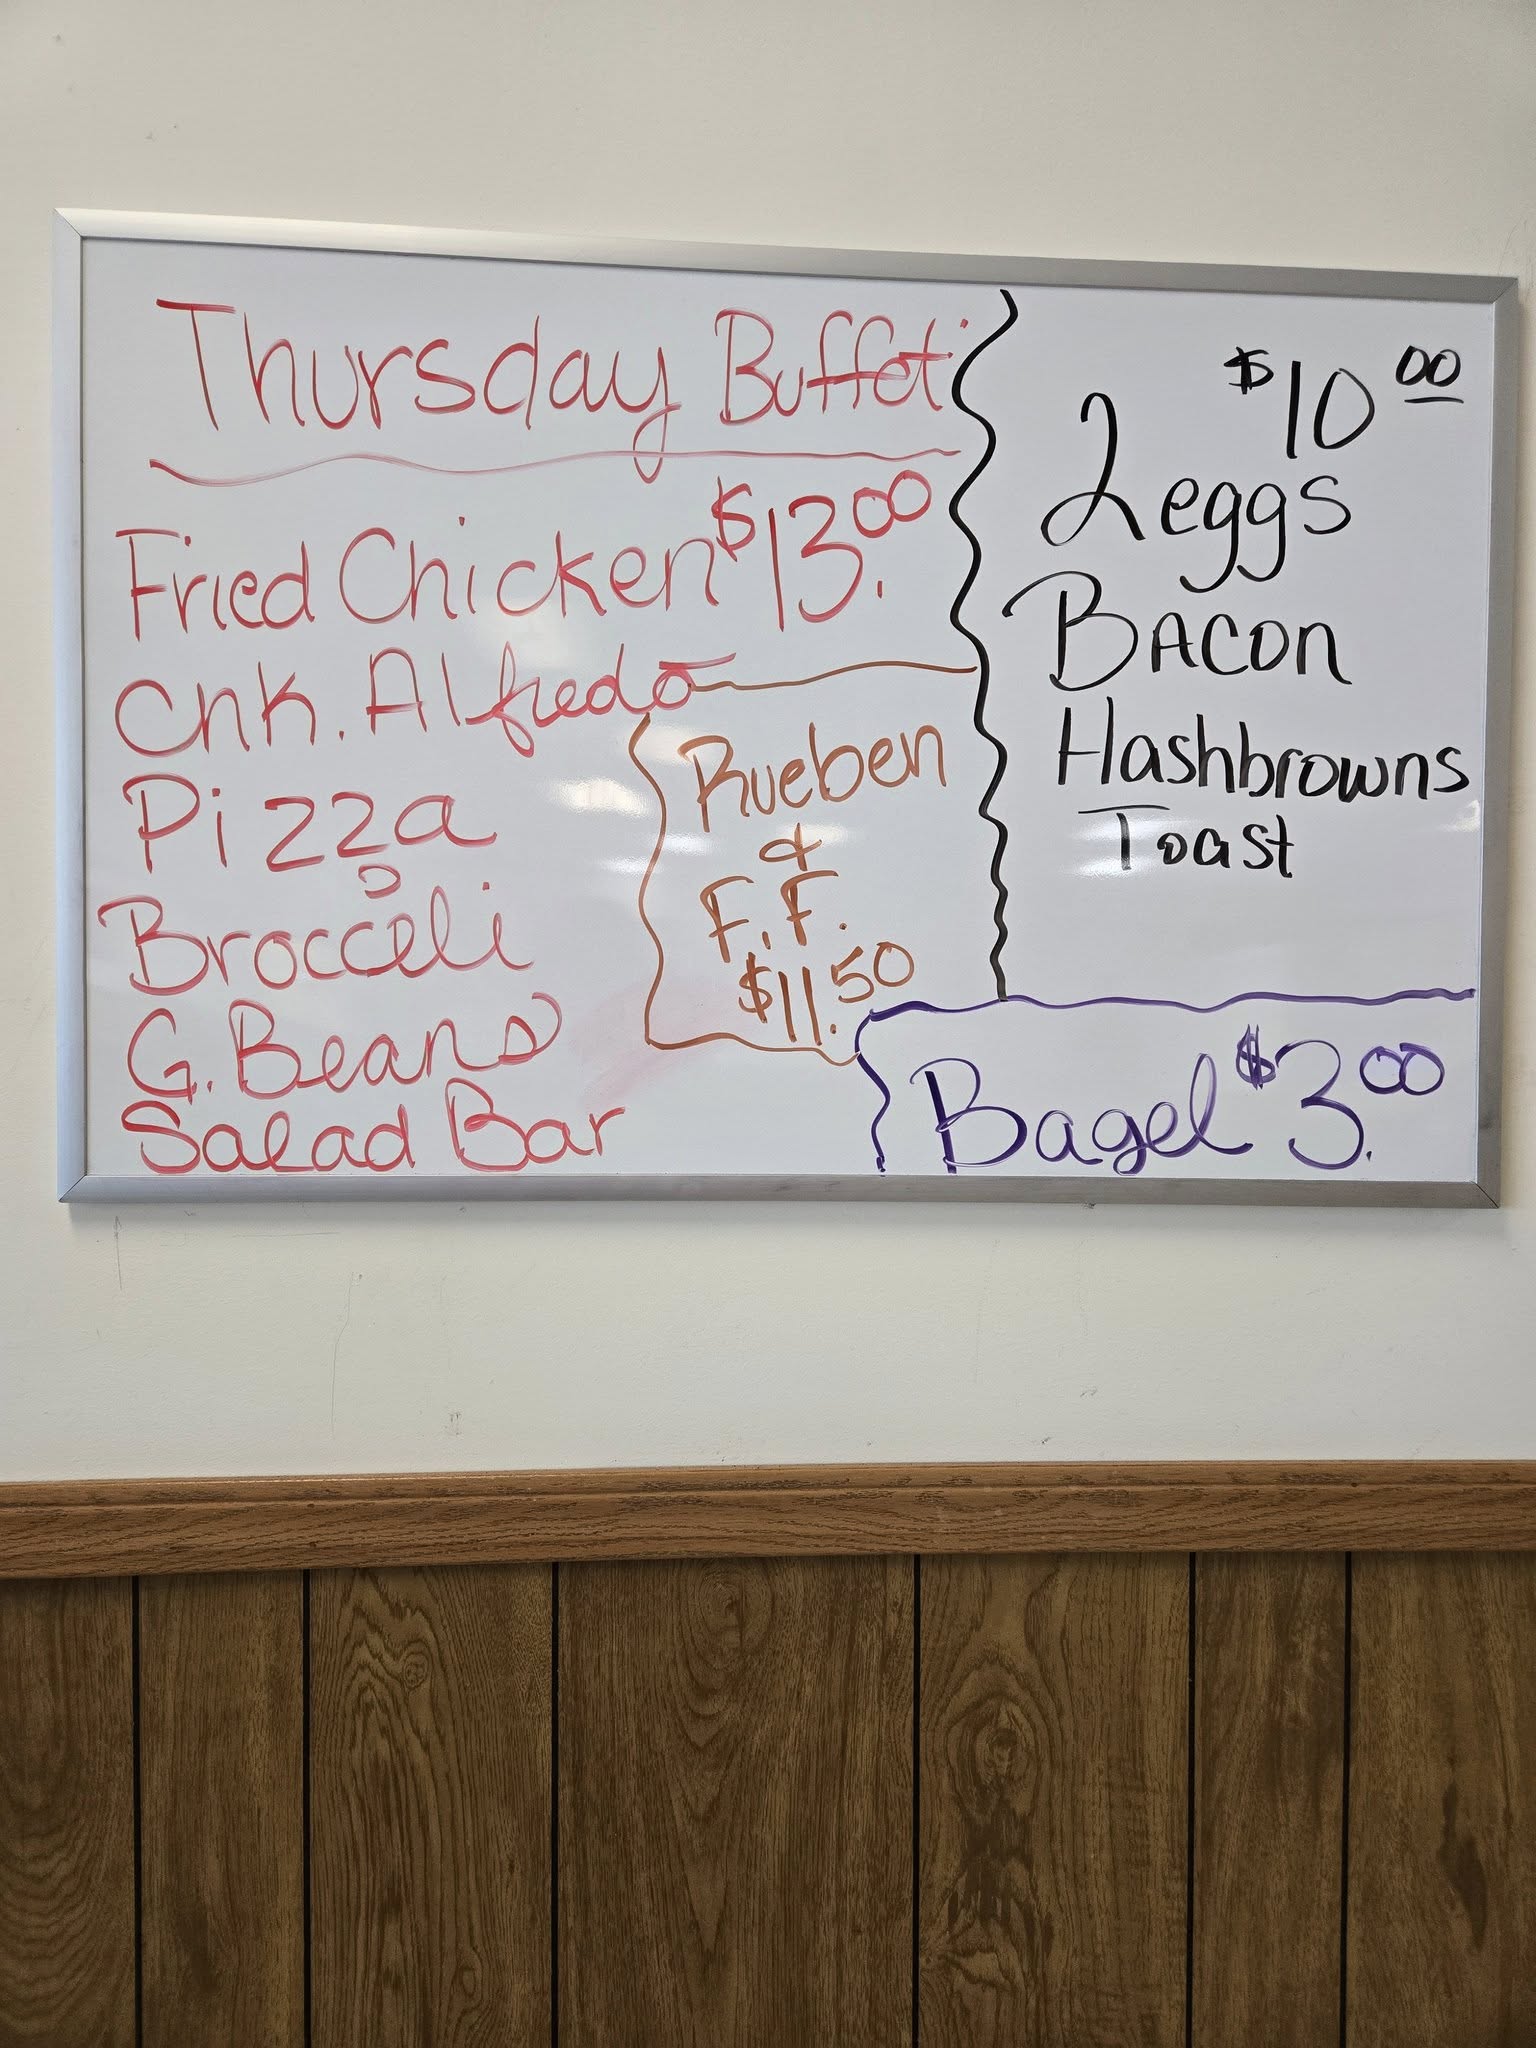 Thursday Buffet
Fried Chicken $13.00
Chk. Alfredo
Pizza
Broccoli
G. Beans
Salad Bar
Rueben
&
F.F.
$11.50
$10 00
2 eggs
Bacon
Hashbrowns
Toast
Bagel $3.00